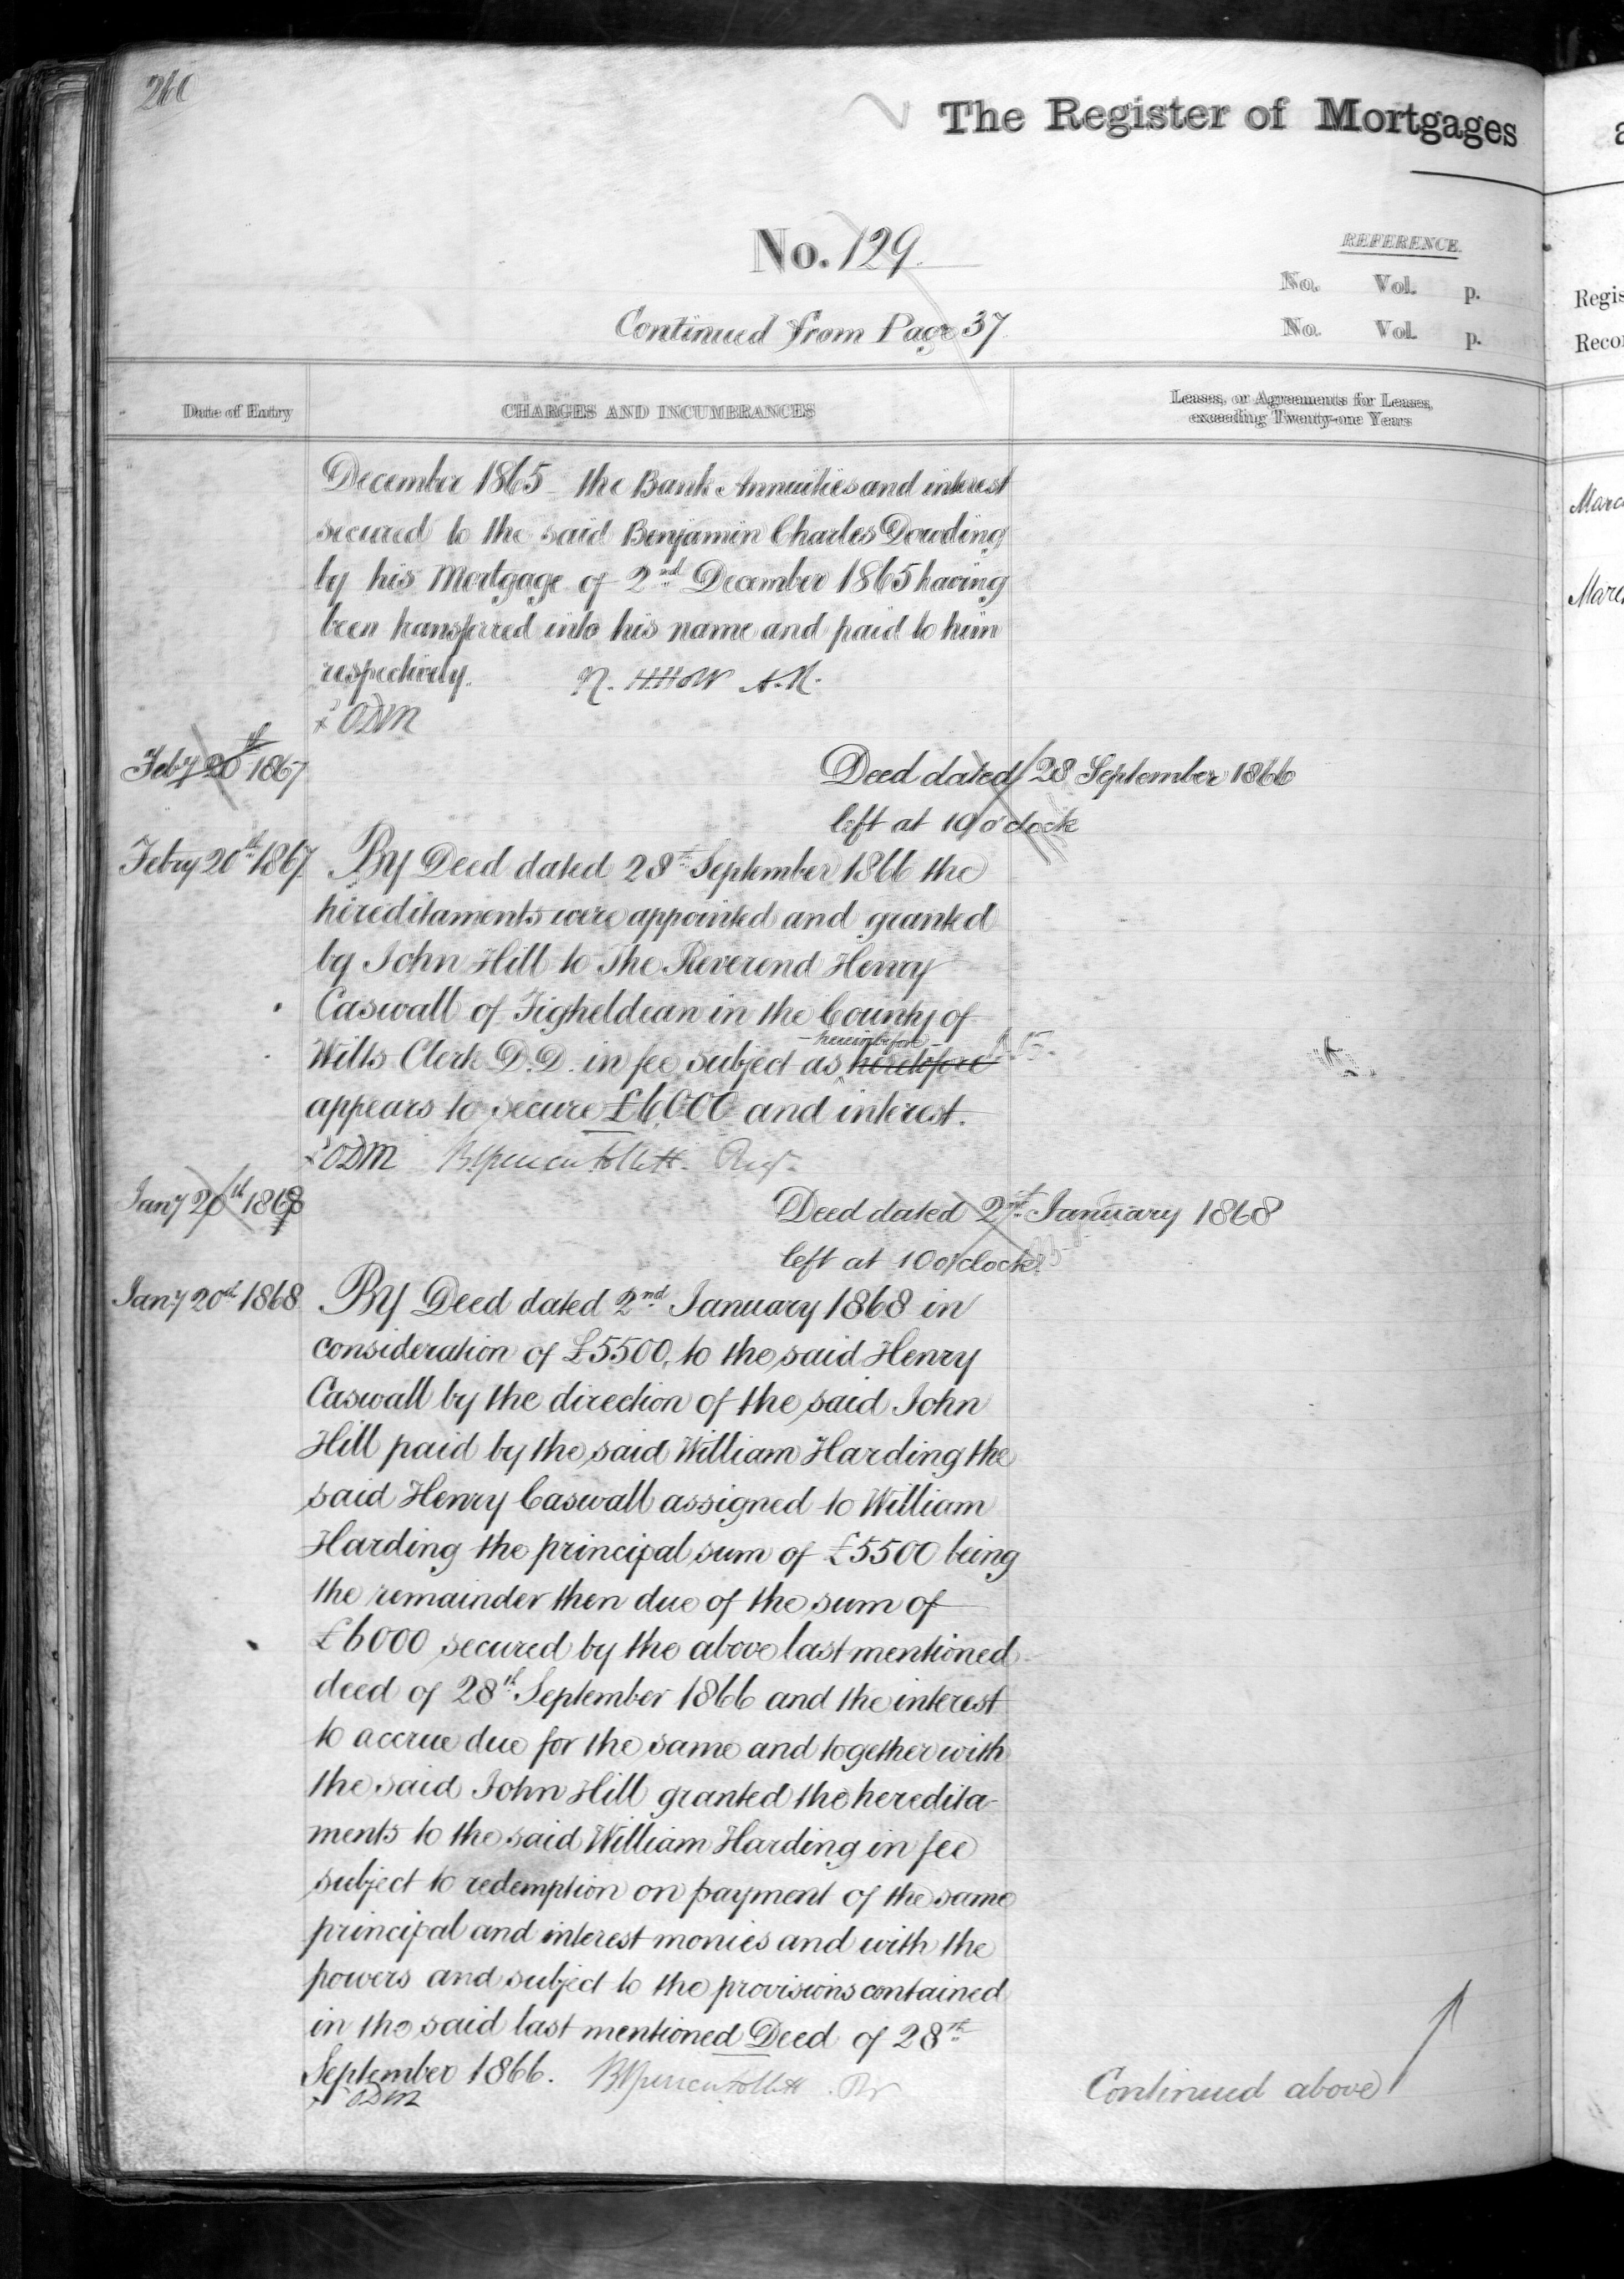 The Register of Mortgages
No. 129.
REFERENCE.
No. Vol. p.
Continued from Page 37
No. Vol. p.
Date of Entry
CHARGES AND INCUMBRANCES
Leases, or Agreements for Leases,
exceeding Twenty-one Years
December 1865 the Bank Annuities and interest
secured to the said Benjamin Charles Dowding
by his Mortgage of 2nd December 1865 having
been transferred into his name and paid to him
respectively.
ODM
Feby 20th 1867
Deed dated 28 September 1866
left at 10 o'clock
Febry 20th 1867
By Deed dated 28th September 1866 the
hereditaments were appointed and granted
by John Hill to The Reverend Henry
Caswall of Figheldean in the County of
Wilts Clerk D.D. in fee subject as hereinbefore
appears to secure £6000 and interest.
ODM
Jany 20th 1868
Deed dated 2nd January 1868
left at 10 o'clock
Jany 20th 1868
By Deed dated 2nd January 1868 in
consideration of £5500, to the said Henry
Caswall by the direction of the said John
Hill paid by the said William Harding the
said Henry Caswall assigned to William
Harding the principal sum of £5500 being
the remainder then due of the sum of
£6000 secured by the above last mentioned
deed of 28th September 1866 and the interest
to accrue due for the same and together with
the said John Hill granted the heredita-
ments to the said William Harding in fee
subject to redemption on payment of the same
principal and interest monies and with the
powers and subject to the provisions contained
in the said last mentioned Deed of 28th
September 1866.
ODM
Continued above
Regis
Recor
Marc